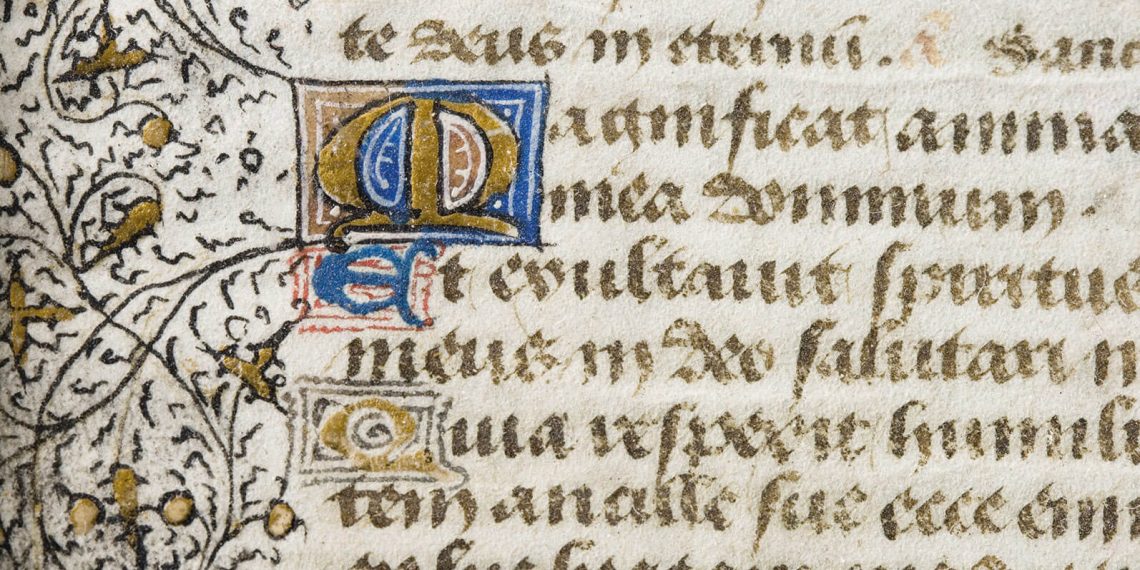 te deus in eternū. a Sanc
Magnificat anima
mea dominum.
Et exultauit spiritus
meus in deo salutari m
Quia respexit humili
tem ancille sue ecce enim